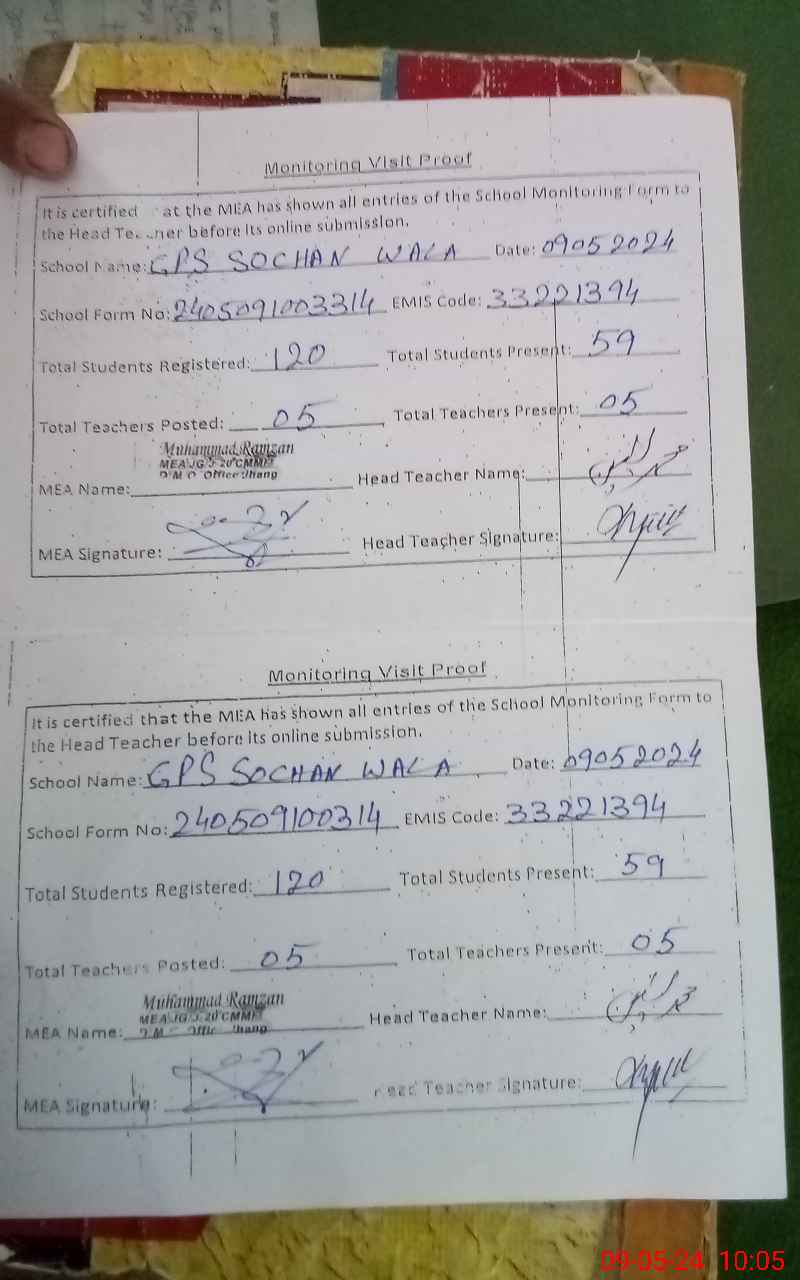 Monitoring Visit Proof
It is certified at the MEA has shown all entries of the School Monitoring Form to
the Head Teacher before its online submission.
School Name: GPS SOCHAN WALA Date: 09052024
School Form No: 2405091003314 EMIS Code: 33221394
Total Students Registered: 120 Total Students Present: 59
Total Teachers Posted: 05 Total Teachers Present: 05
Muhammad Ramzan
MEA
Office Jhang
MEA Name: Head Teacher Name:
MEA Signature: Head Teacher Signature:
Monitoring Visit Proof
It is certified that the MEA has shown all entries of the School Monitoring Form to
the Head Teacher before its online submission.
School Name: GPS SOCHAN WALA Date: 09052024
School Form No: 240509100314 EMIS Code: 33221394
Total Students Registered: 120 Total Students Present: 59
Total Teachers Posted: 05 Total Teachers Present: 05
Muhammad Ramzan
MEA
MEA Name: Head Teacher Name:
MEA Signature: Head Teacher Signature:
09-05-24 10:05